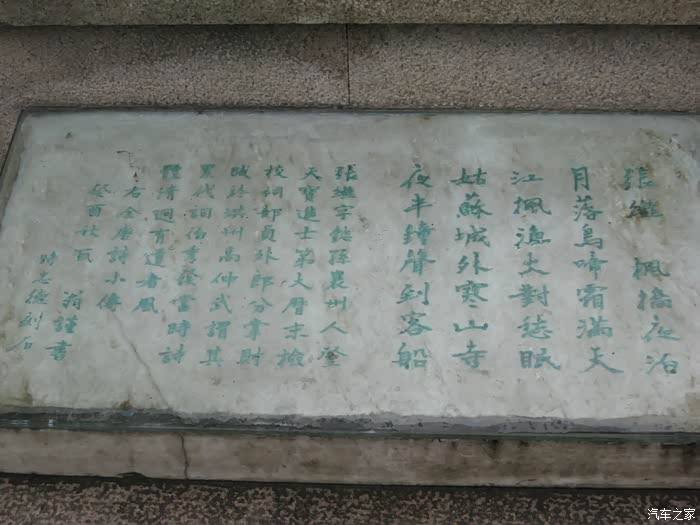 張繼 楓橋夜泊
月落烏啼霜滿天
江楓漁火對愁眠
姑蘇城外寒山寺
夜半鐘聲到客船
張繼字懿孫襄州人登
天寶進士第大曆末檢
校祠部員外郎分掌財
賦於洪州高仲武謂其
累代詞伯秀發當時詩
體清迥有道者風
右全唐詩小傳
癸酉秋瓦翁謹書
時忠德刻石
汽车之家